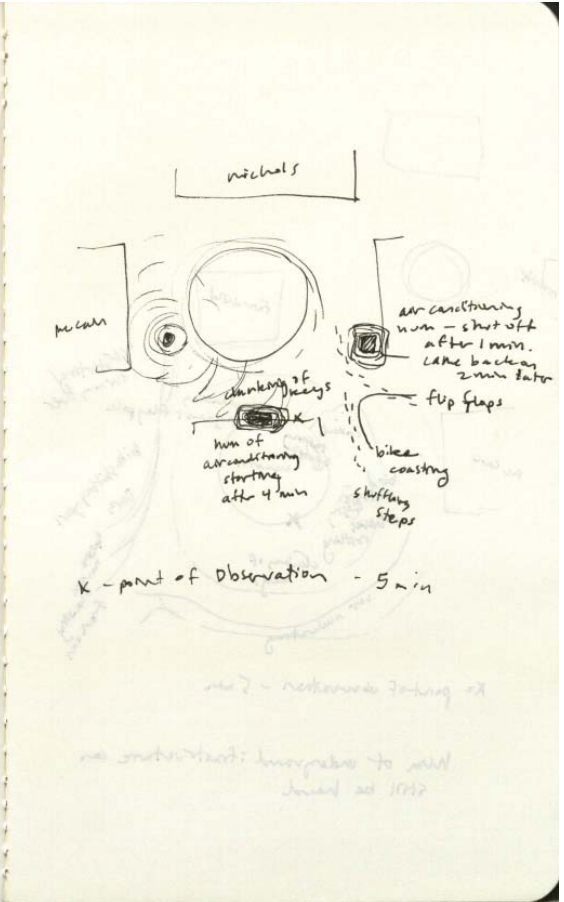 nichols
mccain
air conditioning
hum – shut off
after 1 min.
came back on
2 min later
flip flops
keys
x
hum of
air conditioning
starting
after 4 min
bike
coasting
shuffling
steps
x – point of Observation – 5 min